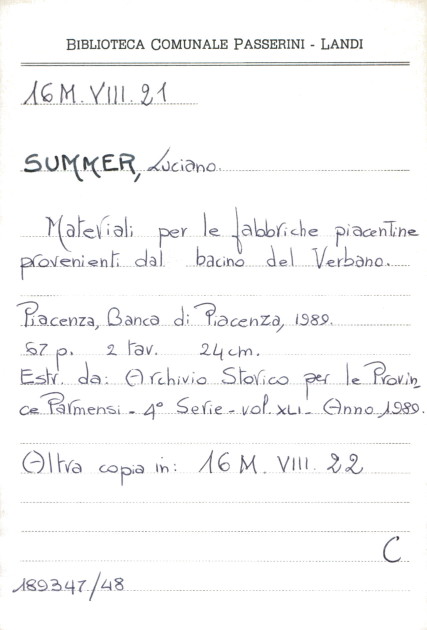 BIBLIOTECA COMUNALE PASSERINI - LANDI
16 M. VIII. 21
SUMMER, Luciano.
Materiali per le fabbriche piacentine
provenienti dal bacino del Verbano.
Piacenza, Banca di Piacenza, 1989.
57 p. 2 tav. 24 cm.
Estr. da: Archivio Storico per le Provin
ce Parmensi - 4° Serie - vol. XLI - Anno 1989.
Altra copia in: 16 M. VIII. 22
C
189347/48